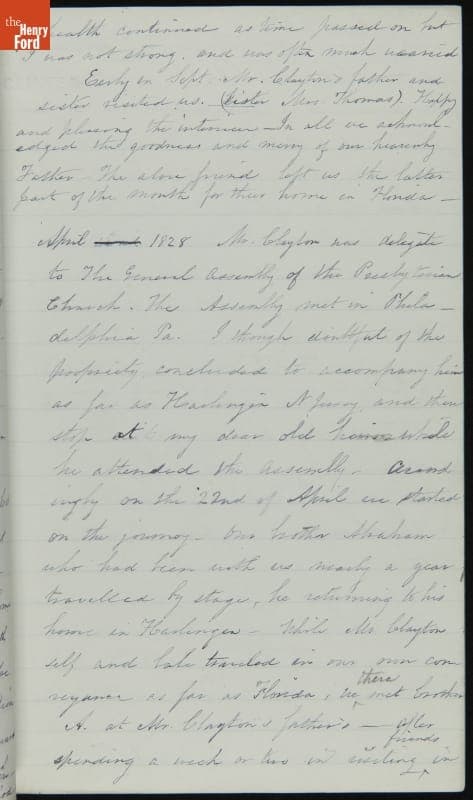 the
Henry
Ford
health continued as time passed on but
I was not strong. and was often much wearied
Early in Sept. Mr. Clayton's father and
sister visited us. (Sister Mrs. Thomas). Happy
and pleasing the interview - In all we acknowl-
edged the goodness and mercy of our heavenly
Father - The above friend left us the latter
part of the month for their home in Florida -
April 1828 Mr. Clayton was delegate
to The General Assembly of the Presbyterian
Church. The Assembly met in Phila-
delphia Pa. I though doubtful of the
propriety, concluded to accompany him
as far as Harlingen N Jersey, and then
stop at my dear old home while
he attended the Assembly - Accord
ingly on the 22nd of April we started
on the journey - Our brother Abraham
who had been with us nearly a year
travelled by stage, he returning to his
home in Harlingen - While Mr. Clayton
self and babe traveled in our own con
veyance as far as Florida, we there met brother
A. at Mr. Clayton's father's - after
spending a week or two in visiting friends in